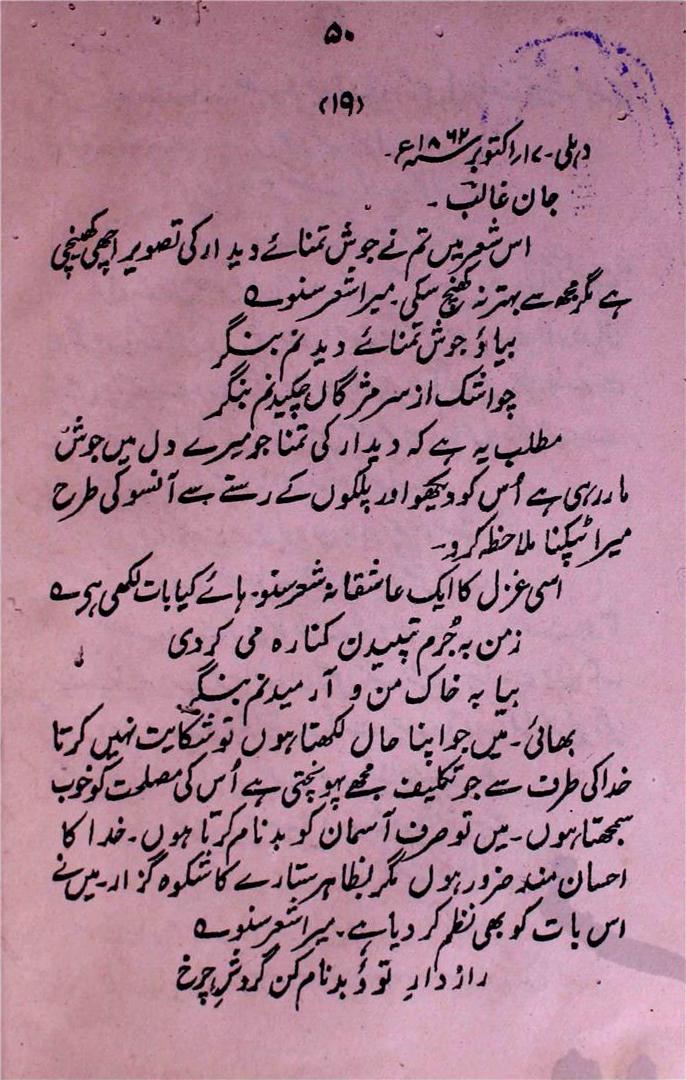 ۵۰
(۱۹)
دہلی۔ ۱۷؍ اکتوبر ۱۸۶۲ء۔
جان غالبؔ۔
اس شعر میں تم نے جوش تمنائے دیدار کی تصویر اچھی کھینچی
ہے مگر مجھ سے بہتر نہ کھنچ سکی۔ میرا شعر سنو ؎
بیا ؤ جوش تمنائے دیدنم بنگر
چو اشک از سر مژگاں چکیدنم بنگر
مطلب یہ ہے کہ دیدار کی تمنا جو میرے دل میں جوش
مار رہی ہے اُس کو دیکھو اور پلکوں کے رستے سے آنسو کی طرح
میرا ٹپکنا ملاحظہ کرو۔
اسی غزل کا ایک عاشقانہ شعر سنو۔ ہائے کیا بات لکھی ہے ؎
زمن بہ جُرم تپیدن کنارہ می کردی
بیا بہ خاک من و آرمیدنم بنگر
بھائی۔ میں جو اپنا حال لکھتا ہوں تو شکایت نہیں کرتا
خدا کی طرف سے جو تکلیف مجھے پہونچتی ہے اُس کی مصلحت کو خوب
سمجھتا ہوں۔ میں تو صرف آسمان کو بدنام کرتا ہوں۔ خدا کا
احسان مند ضرور ہوں مگر بظاہر ستارے کا شکوہ گزار۔ میں نے
اس بات کو بھی نظم کر دیا ہے۔ میرا شعر سنو ؎
رازدارِ تو ؤ بدنام کن گردشِ چرخ